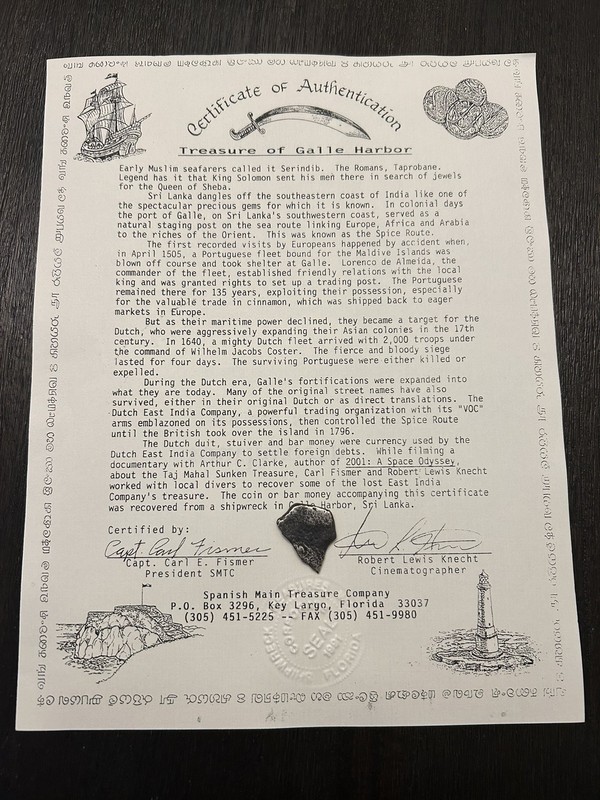 Certificate of Authentication
Treasure of Galle Harbor
Early Muslim seafarers called it Serindib. The Romans, Taprobane.
Legend has it that King Solomon sent his men there in search of jewels
for the Queen of Sheba.
Sri Lanka dangles off the southeastern coast of India like one of
the spectacular precious gems for which it is known. In colonial days
the port of Galle, on Sri Lanka's southwestern coast, served as a
natural staging post on the sea route linking Europe, Africa and Arabia
to the riches of the Orient. This was known as the Spice Route.
The first recorded visits by Europeans happened by accident when,
in April 1505, a Portuguese fleet bound for the Maldive Islands was
blown off course and took shelter at Galle. Lorenco de Almeida, the
commander of the fleet, established friendly relations with the local
king and was granted rights to set up a trading post. The Portuguese
remained there for 135 years, exploiting their possession, especially
for the valuable trade in cinnamon, which was shipped back to eager
markets in Europe.
But as their maritime power declined, they became a target for the
Dutch, who were aggressively expanding their Asian colonies in the 17th
century. In 1640, a mighty Dutch fleet arrived with 2,000 troops under
the command of Wilhelm Jacobs Coster. The fierce and bloody siege
lasted for four days. The surviving Portuguese were either killed or
expelled.
During the Dutch era, Galle's fortifications were expanded into
what they are today. Many of the original street names have also
survived, either in their original Dutch or as direct translations. The
Dutch East India Company, a powerful trading organization with its "VOC"
arms emblazoned on its possessions, then controlled the Spice Route
until the British took over the island in 1796.
The Dutch duit, stuiver and bar money were currency used by the
Dutch East India Company to settle foreign debts. While filming a
documentary with Arthur C. Clarke, author of 2001: A Space Odyssey,
about the Taj Mahal Sunken Treasure, Carl Fismer and Robert Lewis Knecht
worked with local divers to recover some of the lost East India
Company's treasure. The coin or bar money accompanying this certificate
was recovered from a shipwreck in Galle Harbor, Sri Lanka.
Certified by:
Capt. Carl Fismer
Capt. Carl E. Fismer
President SMTC
Robert Lewis Knecht
Cinematographer
Spanish Main Treasure Company
P.O. Box 3296, Key Largo, Florida 33037
(305) 451-5225 -- FAX (305) 451-9980
SEAL
FLORIDA